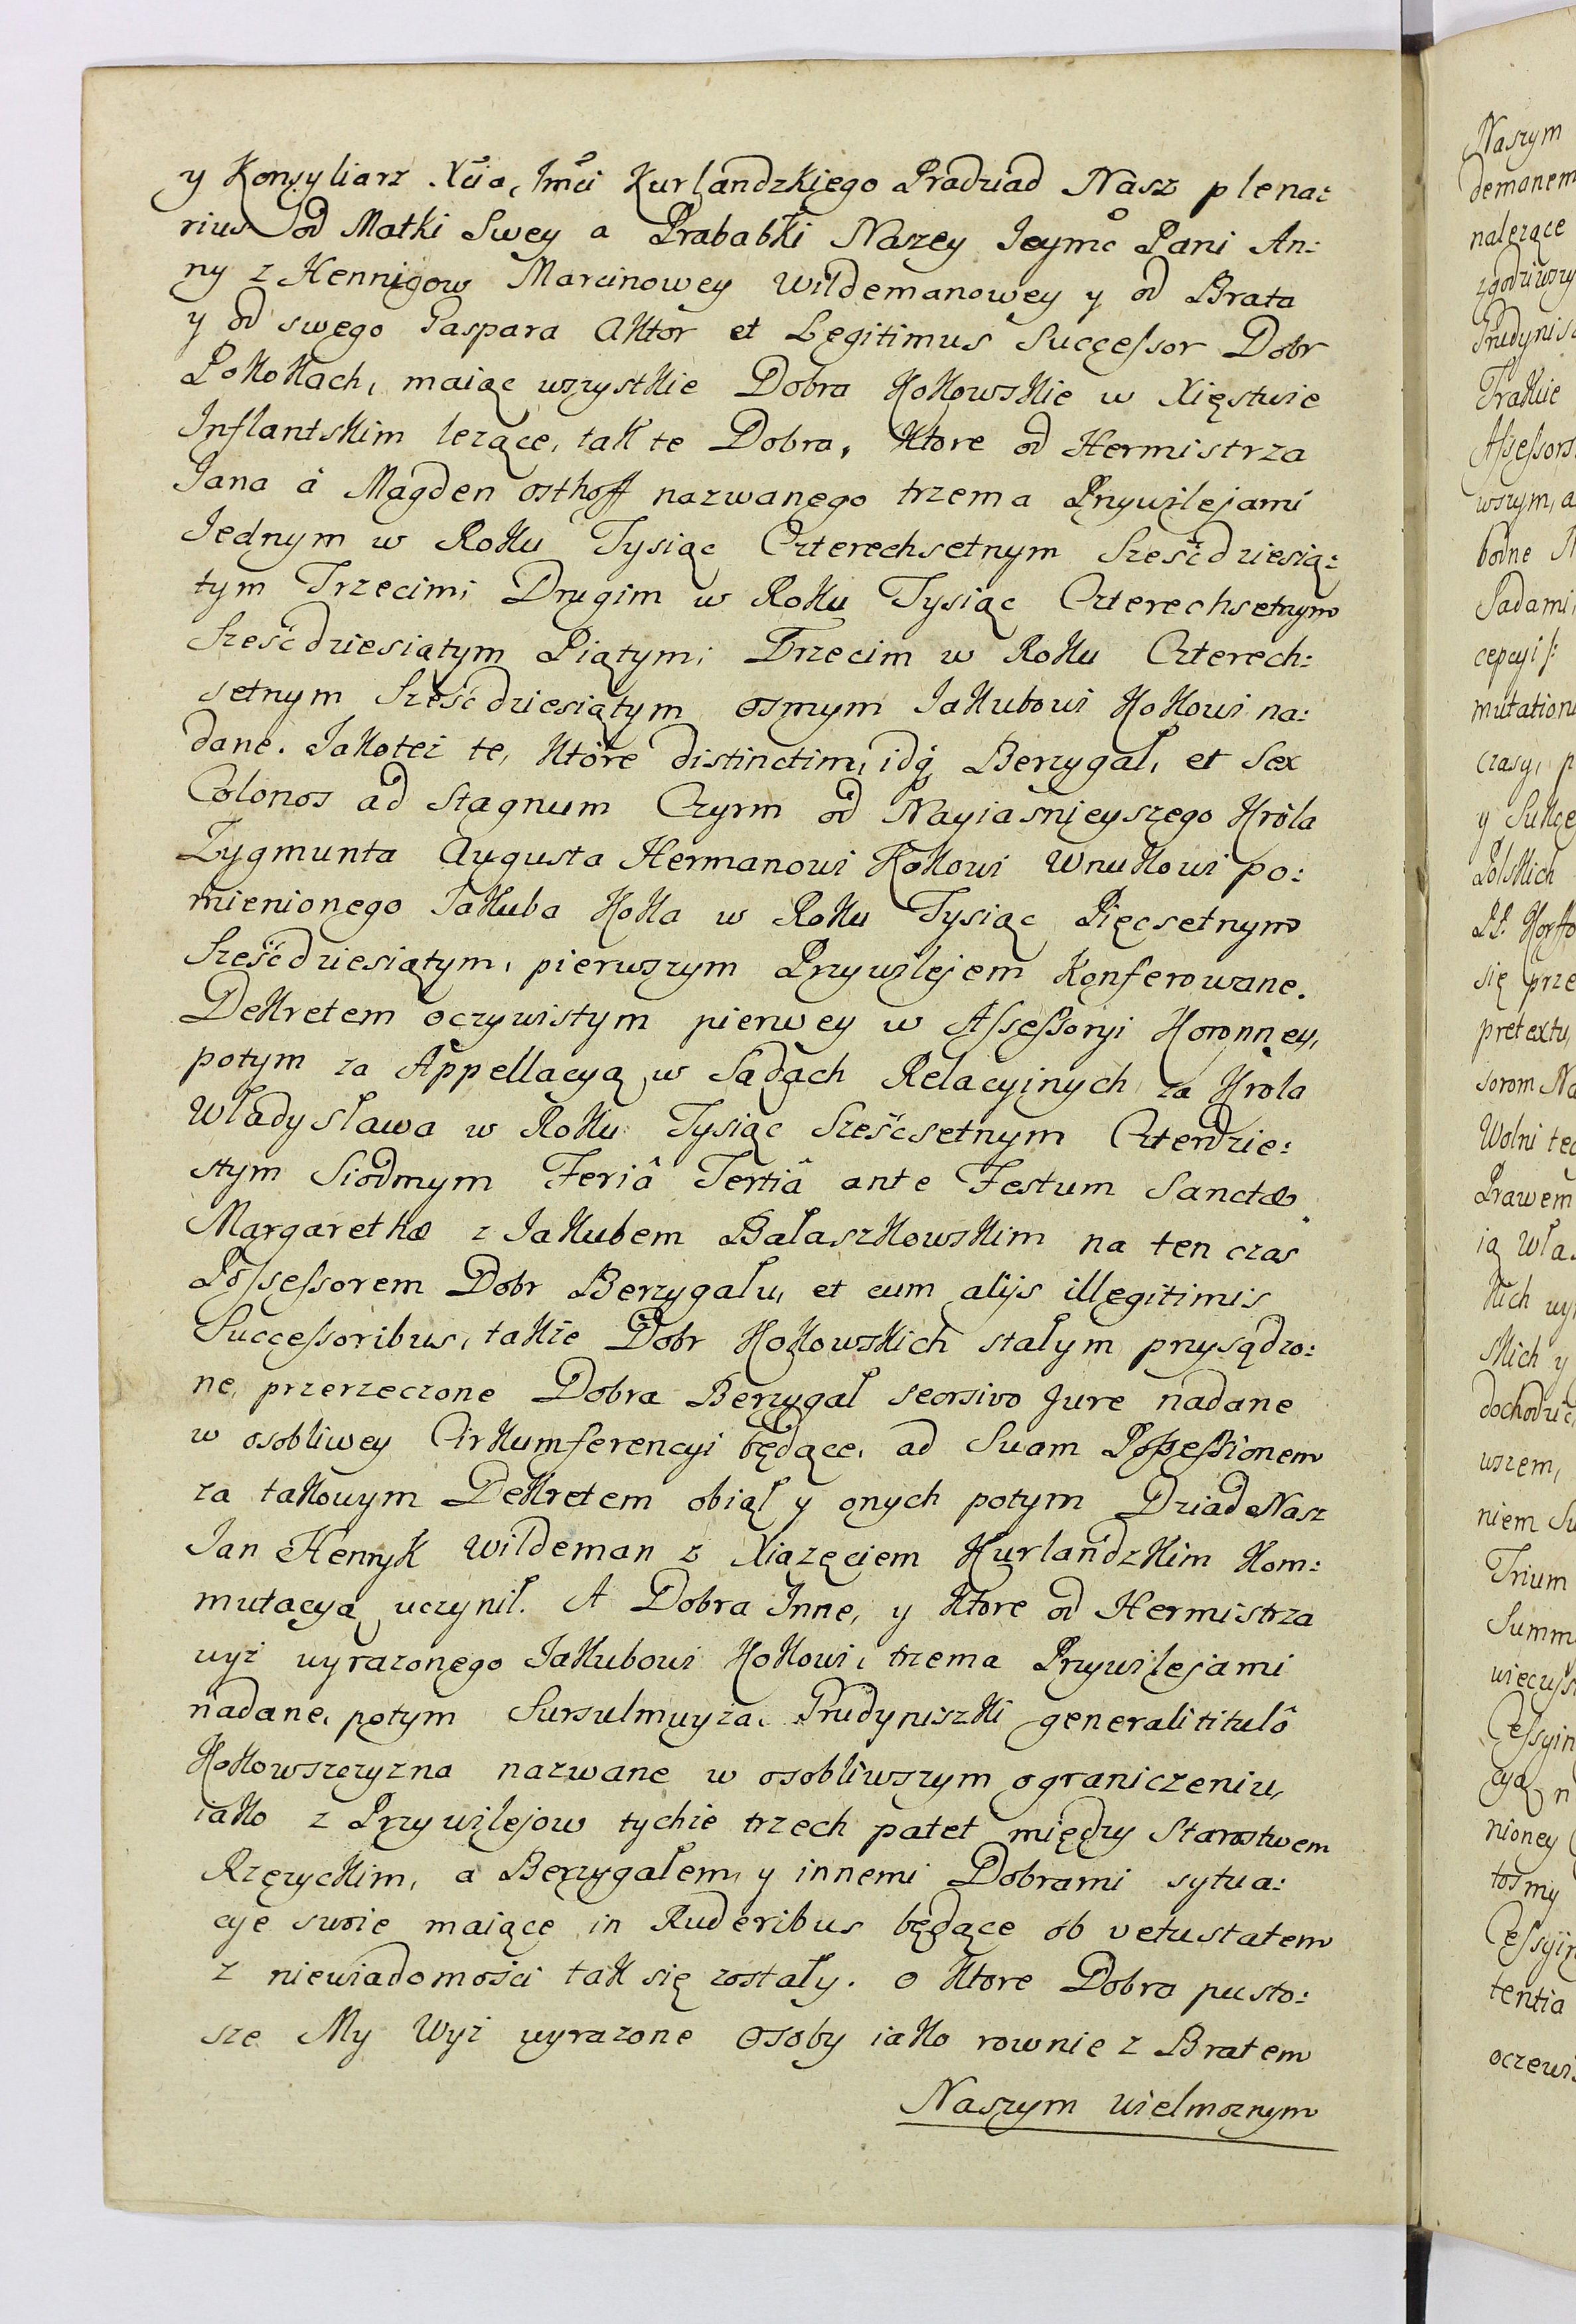 y Konsyliarz Xcia Imci Kurlandzkiego Pradziad Nasz plena:
rius od Matki Swey a Prababki Naszey Jeymc Pani An:
ny z Hennigow Marcinowey Wildemanowey y od Brata
y od swego Gaspara Aktor et Legitimus Succeſsor Dobr
PoKoKach, maiąc wszystkie Dobra Kokowskie w Xięstwie
Inflantskim leżące, tak te Dobra, Ktore od Hermistrza
Jana à Magden osthoff nazwanego trzema Przywilejami
Jednym w Roku Tysiąc Czterechsetnym Sześćdziesią:
tym Trzecim; Drugim w Roku Tysiąc Czterechsetnym
Sześćdziesiątym Piątym; Trzecim w Roku Czterech:
setnym Sześćdziesiątym osmym Jakubowi Kokowi na:
dane. Jakoteż te, Które distinctim, idq Berzygał, et Sex
Colonos ad Stagnum Czyrm od Nayiasnieyszego Króla
Zygmunta Augusta Hermanowi Kokowi Wnukowi po:
mienionego Jakuba Koka w Roku Tysiąc Pięcsetnym
Sześćdziesiątym, pierwszym Przywilejem Konferowane.
Dekretem oczywistym pierwey w Aſseſsoryi Koronney,
potym za Appellacyą w Sądach Relacyinych za Krola
Władysława w Roku Tysiąc Sześćsetnym Czterdzie:
stym Siodmym Feriâ Tertiâ ante Festum Sanctæ
Margarethæ z Jakubem Bałaszkowskim na ten czas
Poſseſsorem Dobr Berzygału, et cum alijs illegitimis
Succeſsoribus, także Dobr Kokowskich stałym przysądzo:
ne, przerzeczone Dobra Berzygał seorsivo Jure nadane
w osobliwey Cirkumferencyi będące, ad Suam Poſseſsionem
za takowym Dekretem obiął y onych potym Dziad Nasz
Jan Henryk Wildeman z Xiążęciem Kurlandzkim Kom:
mutacyą uczynił. A Dobra Inne, y Ktore od Hermistrza
wyż wyrażonego Jakubowi Kokowi, trzema Przywilejami
nadane, potym Sursulmuyża, Prudyniszki generali titulô
Kokowszczyzna nazwane w osobliwszym ograniczeniu,
iako z Przywilejow tychże trzech patet między Starostwem
Rzęzyckim, a Berzygałem, y innemi Dobrami sytua:
cye swoie maiące in Ruderibus będące ob vetustatem
z niewiadomości tak się zostały. o Ktore Dobra pusto:
sze My Wyż wyrażone Osoby iako rownie z Bratem
Naszym Wielmoznym
Naszym
nalezące
Trakcie
pretextu,
Prawem
Trium
tentia